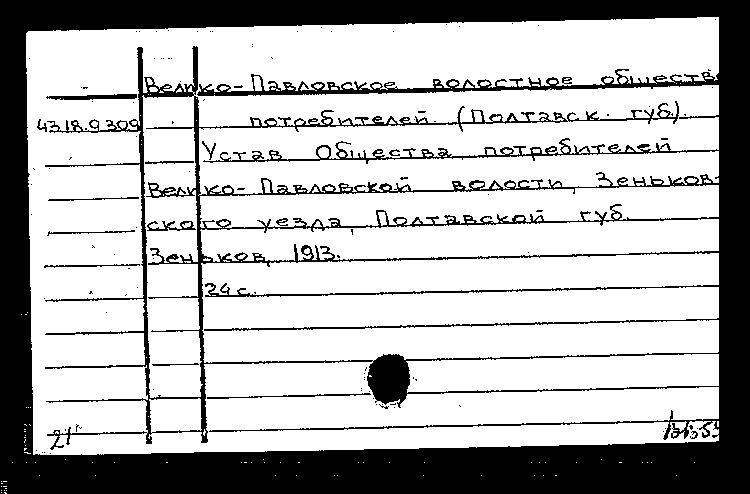 Велико-Павловское волостное общество
43.18.9.309 потребителей (Полтавск. губ).
Устав Общества потребителей
Велико-Павловской волости, Зеньков-
ского уезда, Полтавской губ.
Зеньков, 1913.
24 с.
21